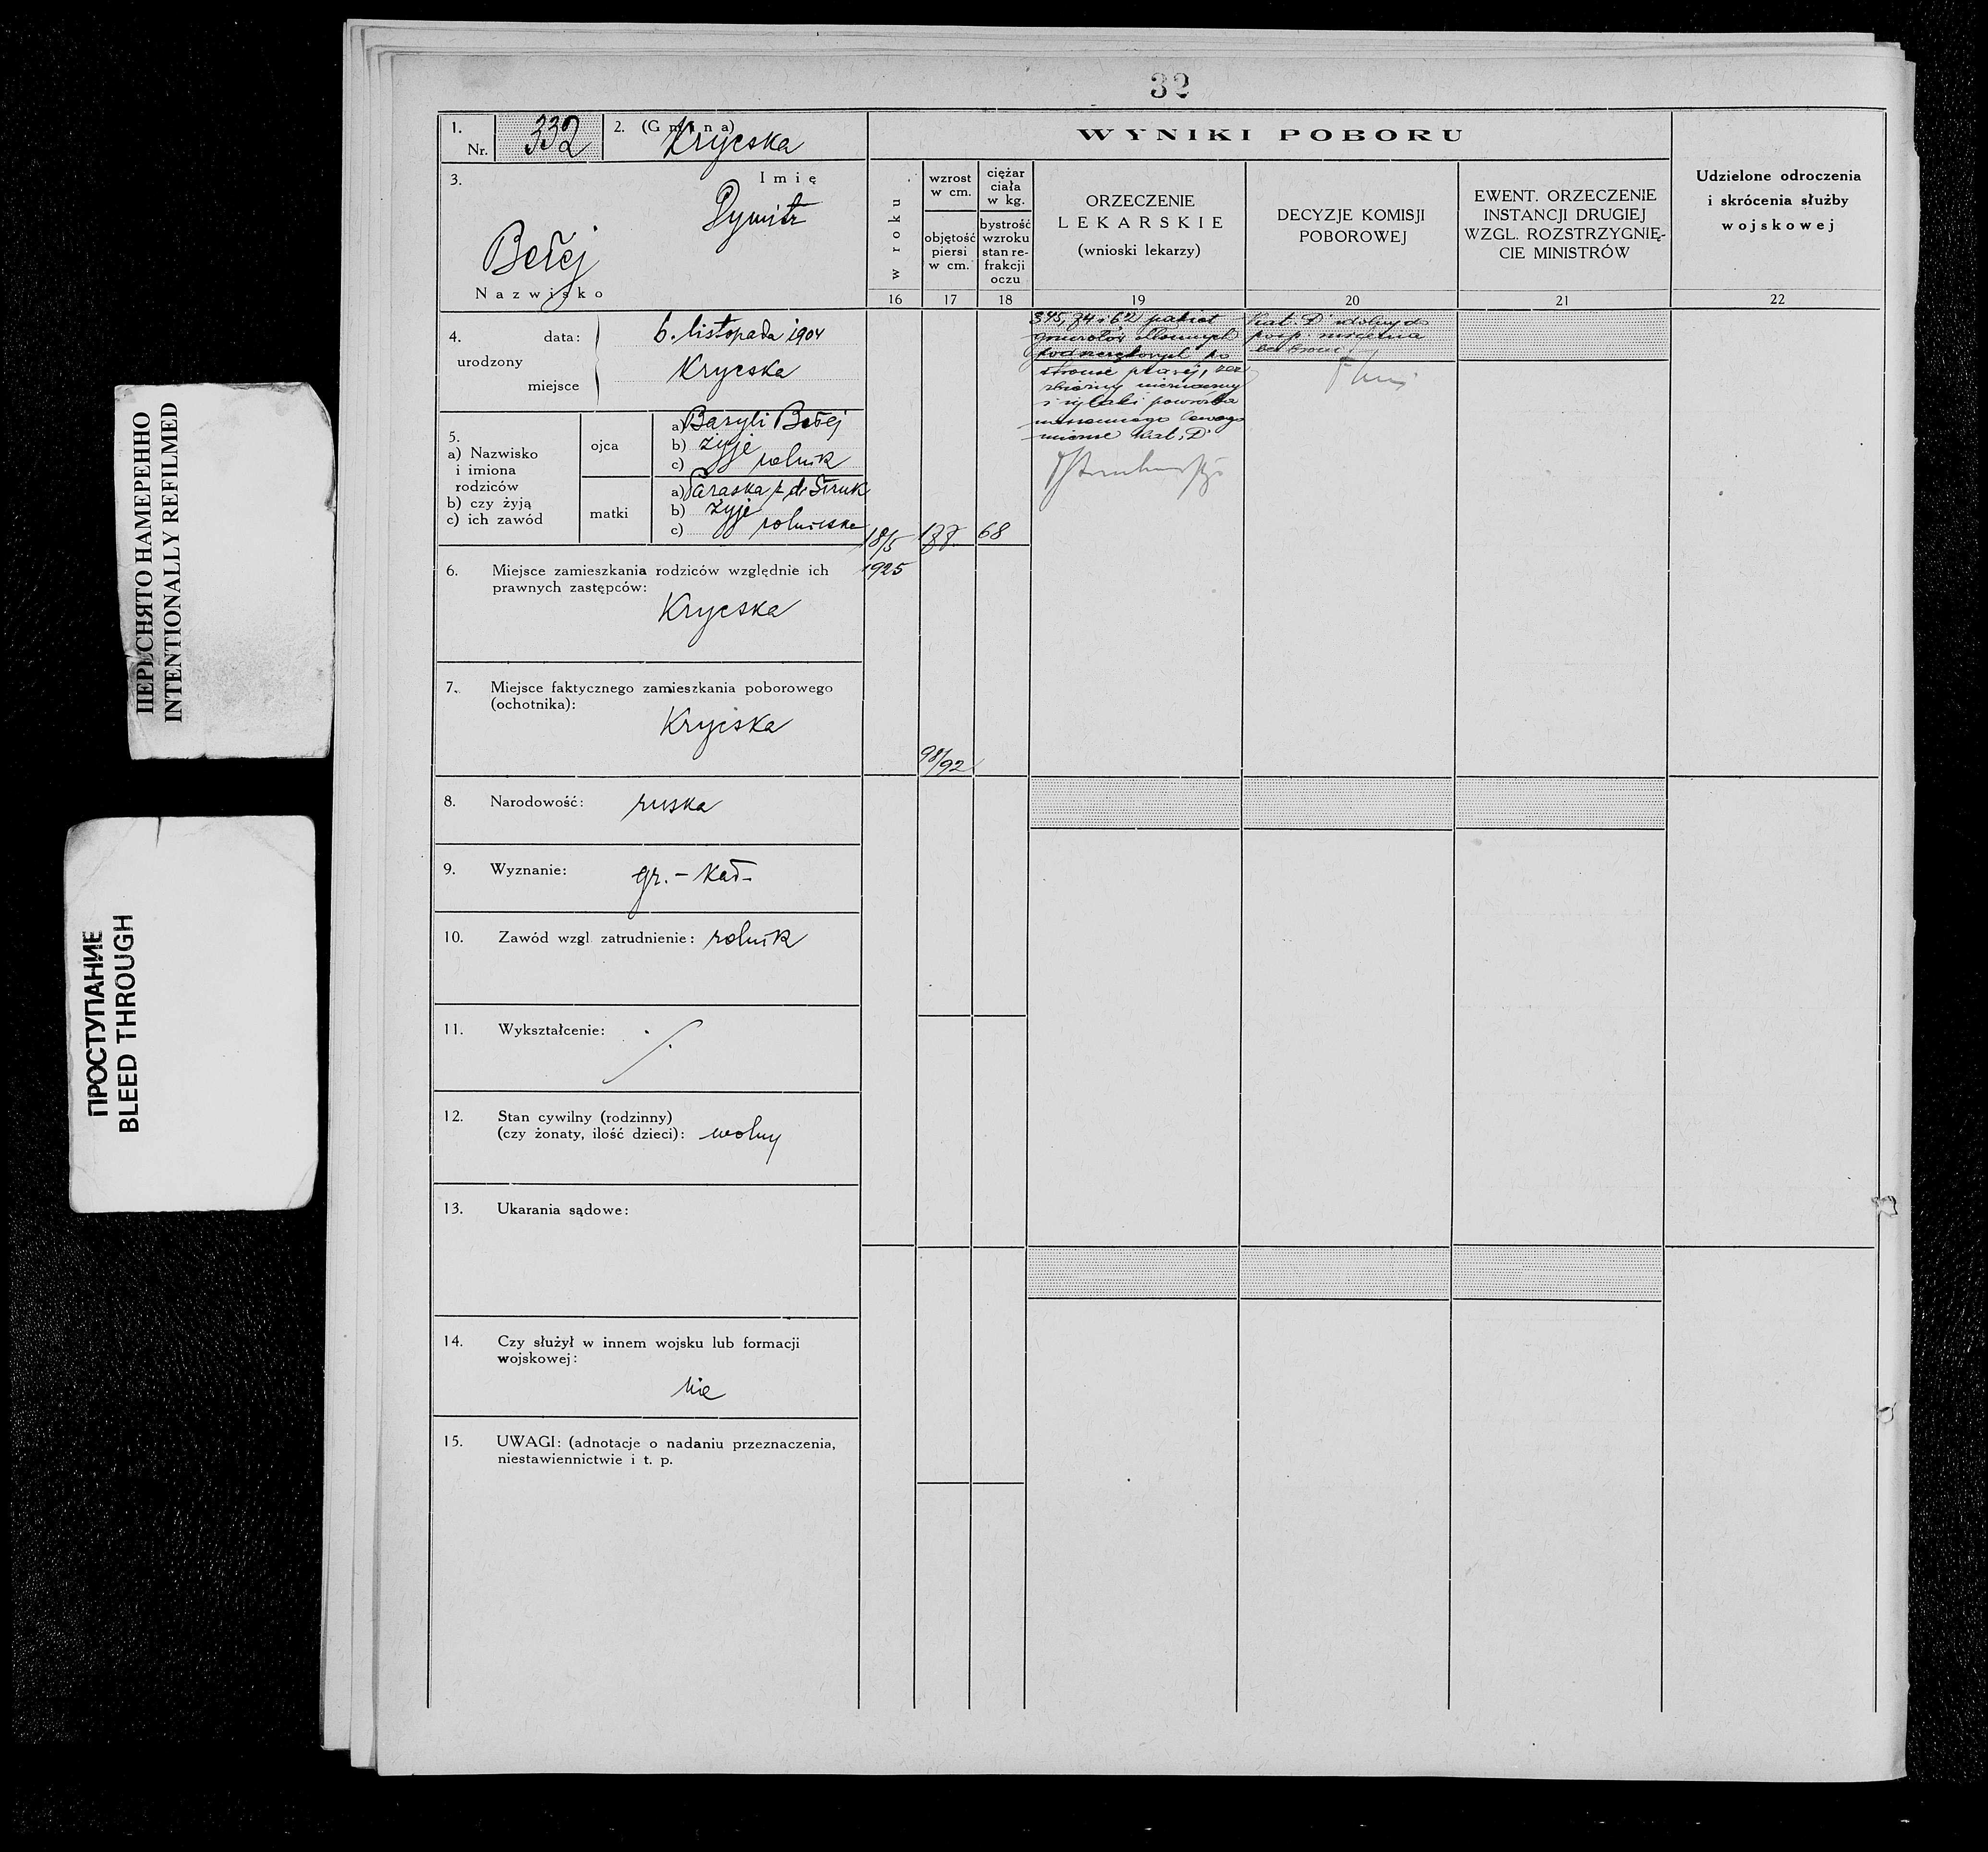 32
1. Nr. 332
2. (Gmina) Krycska
3. Imię
Dymitr
Bełej
Nazwisko
4. urodzony
data: 6. listopada 1904
miejsce Krycska
5.
a) Nazwisko
i imiona
rodziców
b) czy żyją
c) ich zawód
ojca
a) Baryli Bełej
b) żyje
c) rolnik
matki
a) Paraska z d. Struk
b) żyje
c) rolniczka
6. Miejsce zamieszkania rodziców względnie ich
prawnych zastępców:
Krycska
7. Miejsce faktycznego zamieszkania poborowego
(ochotnika):
Krycska
8. Narodowość: ruska
9. Wyznanie: gr.-kat.
10. Zawód wzgl. zatrudnienie: rolnik
11. Wykształcenie:
12. Stan cywilny (rodzinny)
(czy żonaty, ilość dzieci): wolny
13. Ukarania sądowe:
14. Czy służył w innem wojsku lub formacji
wojskowej:
nie
15. UWAGI: (adnotacje o nadaniu przeznaczenia,
niestawiennictwie i t. p.
WYNIKI POBORU
w roku
16
wzrost
w cm.
objętość
piersi
w cm.
17
ciężar
ciała
w kg.
bystrość
wzroku
stan re-
frakcji
oczu
18
ORZECZENIE
LEKARSKIE
(wnioski lekarzy)
19
DECYZJE KOMISJI
POBOROWEJ
20
EWENT. ORZECZENIE
INSTANCJI DRUGIEJ
WZGL. ROZSTRZYGNIĘ-
CIE MINISTRÓW
21
Udzielone odroczenia
i skrócenia służby
wojskowej
22
18/5
1925
68
98/92
345, 74 i 62 pakiet
stronie prawej,
Kat. "D"
Kat. D zdolny do
posp. ruszenia
bez broni
ПЕРЕСНЯТО НАМЕРЕННО
INTENTIONALLY REFILMED
ПРОСТУПАНИЕ
BLEED THROUGH